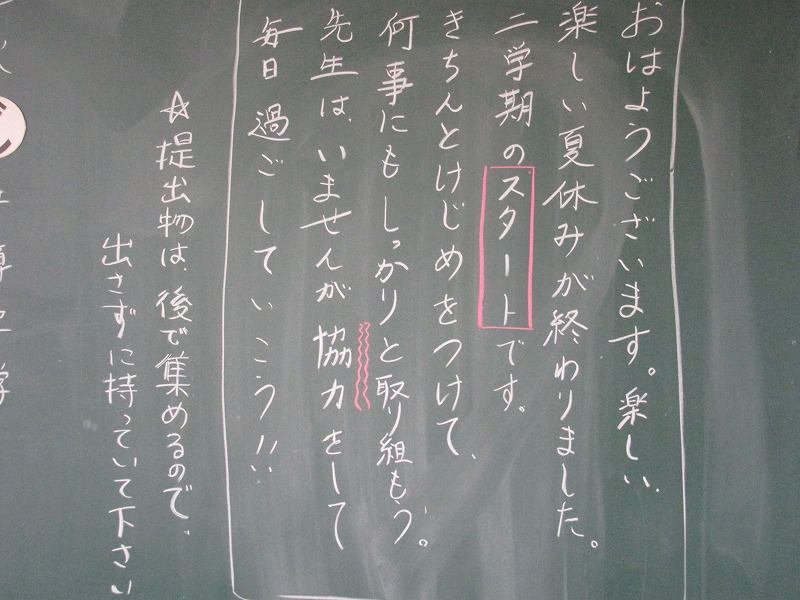 おはようございます。楽しい、
楽しい夏休みが終わりました。
二学期のスタートです。
きちんとけじめをつけて、
何事にもしっかりと取り組もう。
先生は、いませんが協力をして
毎日過ごしていこう!!
☆提出物は、後で集めるので、
出さずに持っていて下さい